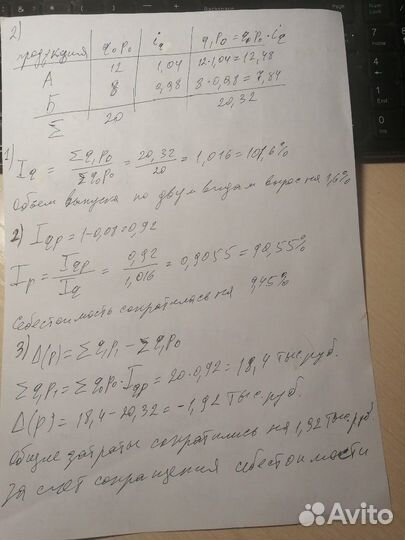 2)
продукция q₀p₀ i_q q₁p₀=q₀p₀·i_q
А 12 1,04 12·1,04=12,48
Б 8 0,98 8·0,98=7,84
Σ 20 20,32
1) I_q = Σq₁p₀/Σq₀p₀ = 20,32/20 = 1,016 = 101,6%
Объем выпуска по двум видам вырос на 1,6%
2) I_qp = 1-0,08=0,92
I_p = I_qp/I_q = 0,92/1,016 = 0,9055 = 90,55%
Себестоимость сократилась на 9,45%
3) Δ(p) = Σq₁p₁ - Σq₁p₀
Σq₁p₁ = Σq₀p₀·I_qp = 20·0,92 = 18,4 тыс.руб.
Δ(p) = 18,4-20,32 = -1,92 тыс.руб.
Общие затраты сократились на 1,92 тыс.руб
за счет сокращения себестоимости
Avito